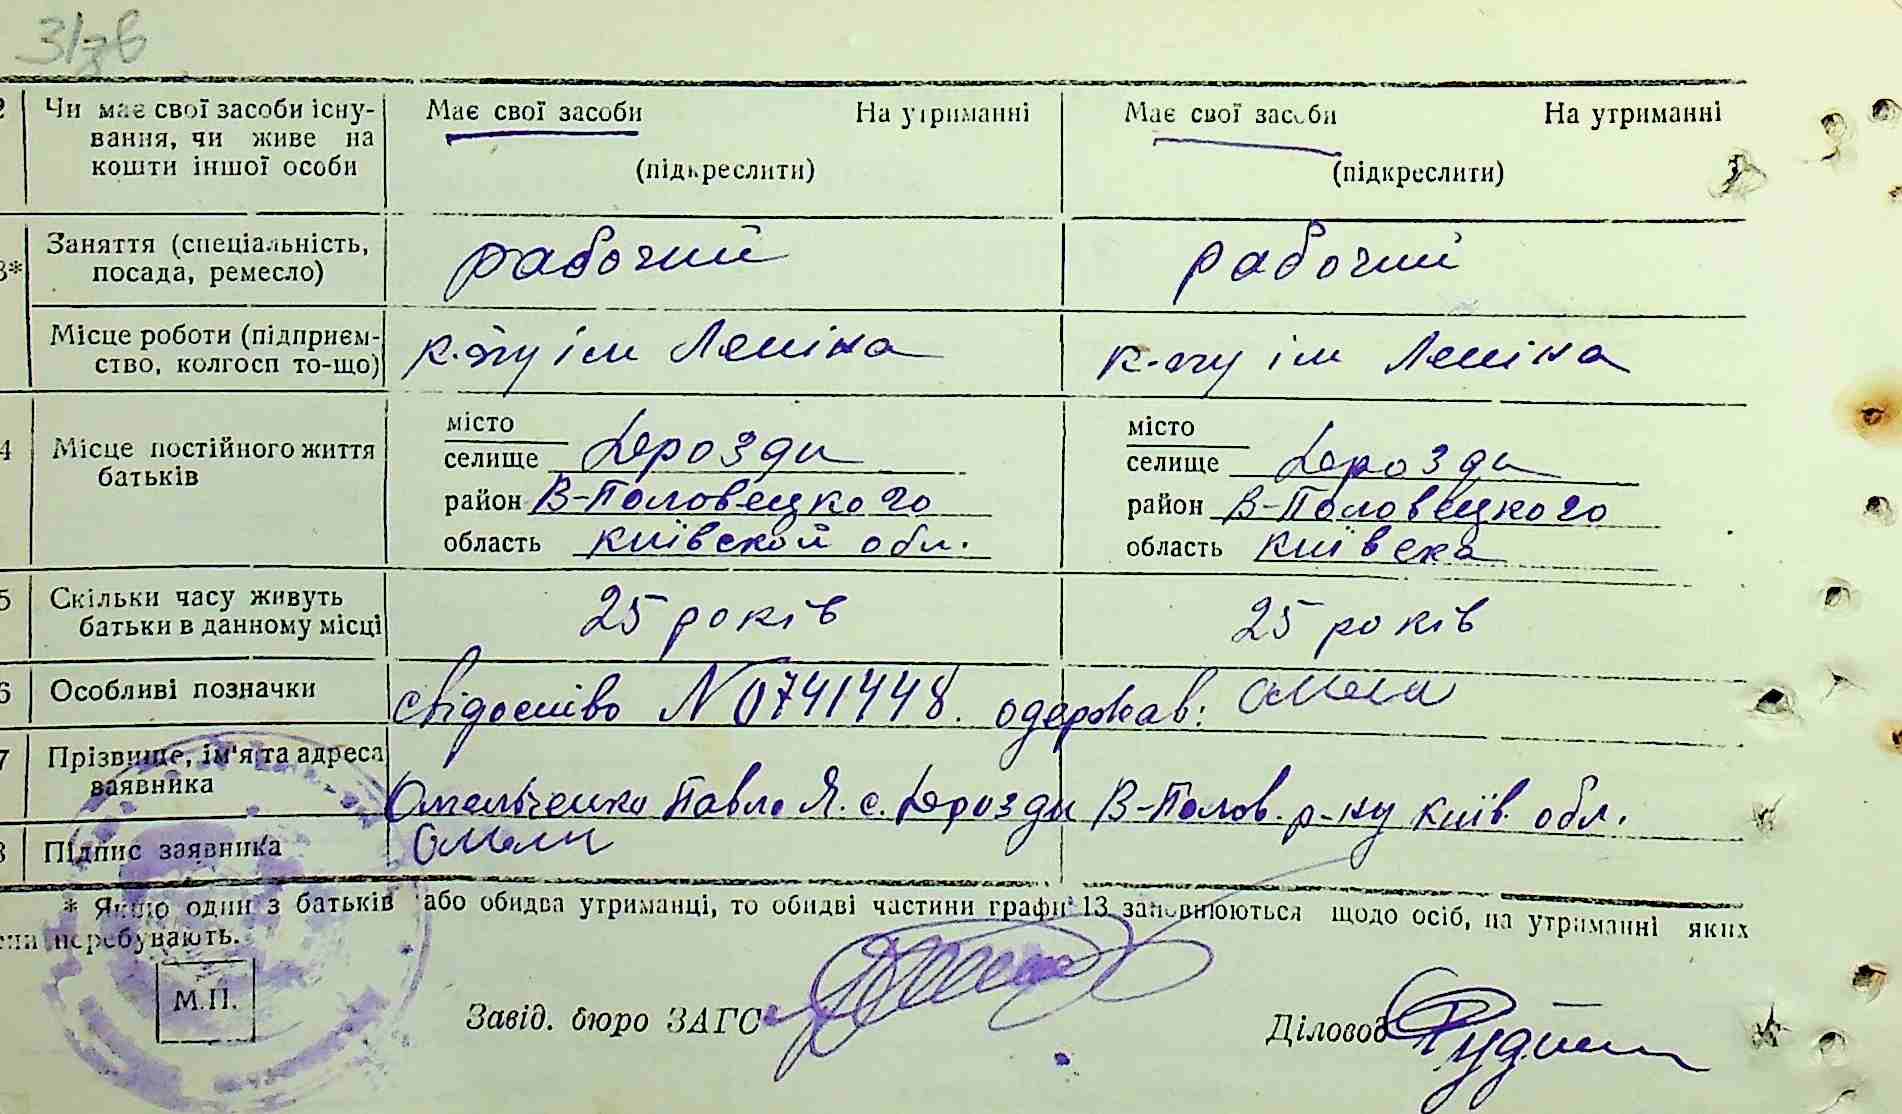 31/зв
2 Чи має свої засоби існу- Має свої засоби На утриманні Має свої засоби На утриманні
вання, чи живе на
кошти іншої особи (підкреслити) (підкреслити)
3* Заняття (спеціальність, рабочий рабочий
посада, ремесло)
Місце роботи (підприєм- к-пу ім Леніна к-пу ім Леніна
ство, колгосп то-що)
місто місто
4 Місце постійного життя селище Дрозди селище Дрозди
батьків район В-Половецкого район В-Половецкого
область київской обл. область київска
5 Скільки часу живуть 25 років 25 років
батьки в данному місці
6 Особливі позначки свідоство N 0741448. одержав: Омели
7 Прізвище, ім'я та адреса
заявника Омельченко Павло Я. с. Дрозди В-Полов. р-ну Київ. обл.
8 Підпис заявника Омели
* Якщо один з батьків або обидва утриманці, то обидві частини графи 13 заповнюються щодо осіб, на утриманні яких
они перебувають.
М.П.
Завід. бюро ЗАГС Діловод